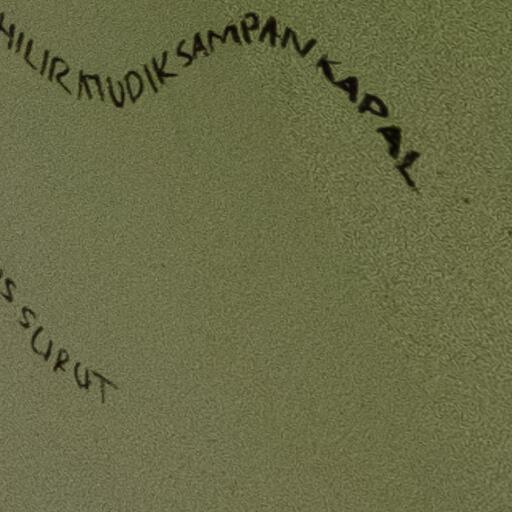 HILIR MUDIK SAMPAN KAPAL
SURUT